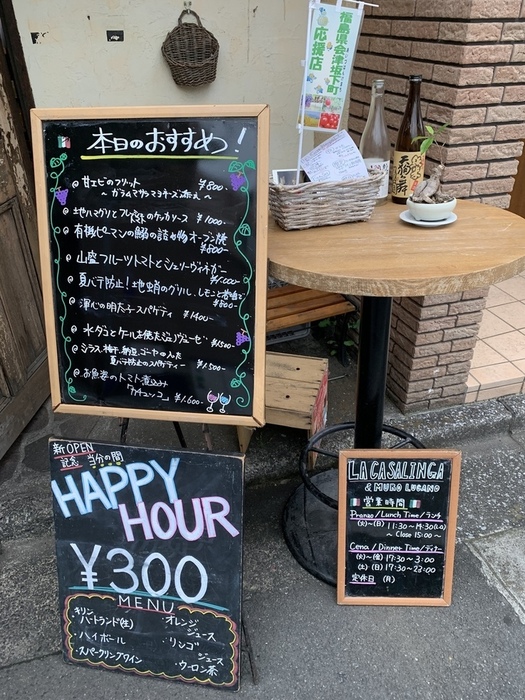 福島県会津坂下町
応援店
本日のおすすめ！
甘エビのフリット
～ガラムマサラマヨチーズ添え～ ¥600-
地ハマグリとフレッシュのケッカソース ¥1000-
有機ピーマンの鰯の詰め物オーブン焼
¥800-
山盛フルーツトマトとシェリーヴィネガー
¥1000-
夏バテ防止！地蛸のグリル、レモンと
¥800-
渾心の明太子スパゲティ ¥1400-
水タコとケールを使たジェノヴェーゼ ¥1500-
シラス、梅干、納豆、ゴーヤの入た
夏バテ防止のスパゲティー ¥1.500-
お魚達のトマト煮込み
「カチュッコ」 ¥1.600-
新OPEN
記念 当分の間
HAPPY
HOUR
¥300
MENU
キリン
・ハートランド(生)
・ハイボール
・スパークリングワイン
・オレンジ
ジュース
・リンゴ
ジュース
・ウーロン茶
LA CASALINGA
& MURO LUCANO
営業時間
Pranzo/Lunch Time/ランチ
(火)～(日) 11:30～14:30(LO)
～ Close 15:00 ～
Cena/Dinner Time/ディナー
(火)～(金) 17:30～3:00
(土)(日) 17:30～23:00
定休日 (月)